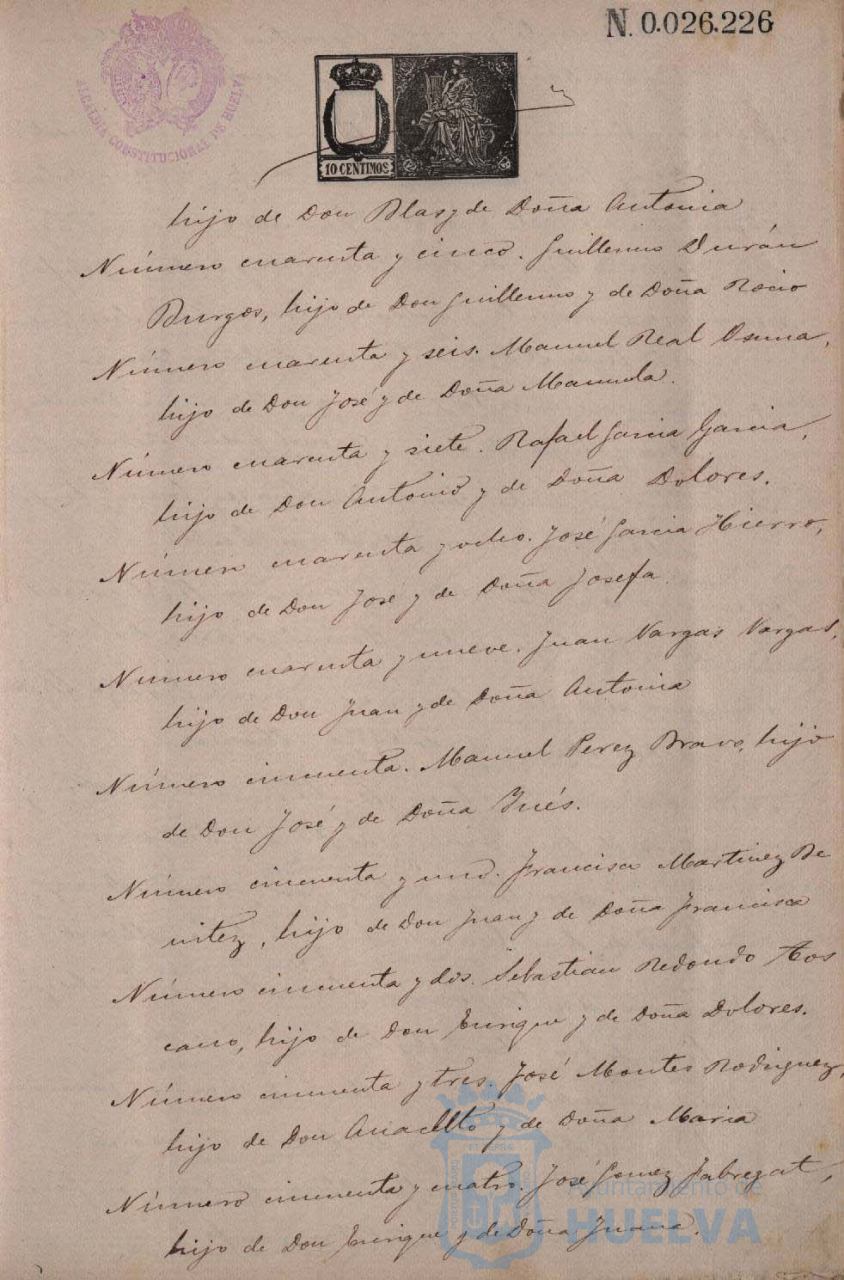 N. 0.026.226
ALCALDIA CONSTITUCIONAL DE HUELVA
10 CENTIMOS
hijo de Don Blas y de Doña Antonia
Número cuarenta y cinco. Guillermo Durán
Burgos, hijo de Don Guillermo y de Doña Rocio
Número cuarenta y seis. Manuel Real Osuna,
hijo de Don José y de Doña Manuela.
Número cuarenta y siete. Rafael Garcia Garcia,
hijo de Don Antonio y de Doña Dolores.
Número cuarenta y ocho. José Garcia Hierro,
hijo de Don José y de Doña Josefa.
Número cuarenta y nueve. Juan Vargas Vargas,
hijo de Don Juan y de Doña Antonia
Número cincuenta. Manuel Perez Bravo, hijo
de Don José y de Doña Inés.
Número cincuenta y uno. Francisco Martinez Be
nitez, hijo de Don Juan y de Doña Francisca
Número cincuenta y dos. Sebastian Redondo Tos
cano, hijo de Don Enrique y de Doña Dolores.
Número cincuenta y tres. José Montes Rodriguez,
hijo de Don Anacleto y de Doña Maria
Número cincuenta y cuatro. José Gomez Fabregat,
hijo de Don Enrique y de Doña Juana.
Ayuntamiento de
HUELVA